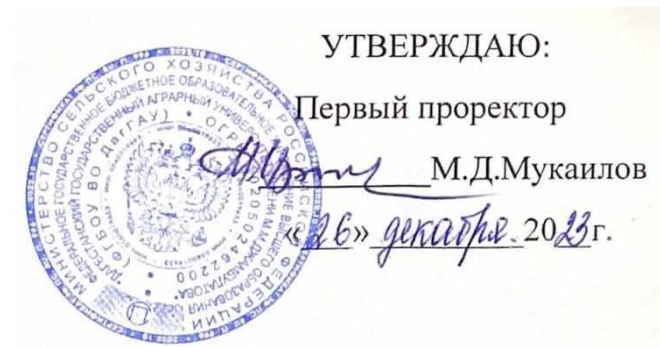 УТВЕРЖДАЮ:
Первый проректор
М.Д.Мукаилов
«26» декабря 2023г.
МИНИСТЕРСТВО СЕЛЬСКОГО ХОЗЯЙСТВА РОССИЙСКОЙ ФЕДЕРАЦИИ
ФЕДЕРАЛЬНОЕ ГОСУДАРСТВЕННОЕ БЮДЖЕТНОЕ ОБРАЗОВАТЕЛЬНОЕ ВЫСШЕГО ОБРАЗОВАНИЯ
"ДАГЕСТАНСКИЙ ГОСУДАРСТВЕННЫЙ АГРАРНЫЙ УНИВЕРСИТЕТ ИМЕНИ М.М.ДЖАМБУЛАТОВА"
(ФГБОУ ВО ДагГАУ)